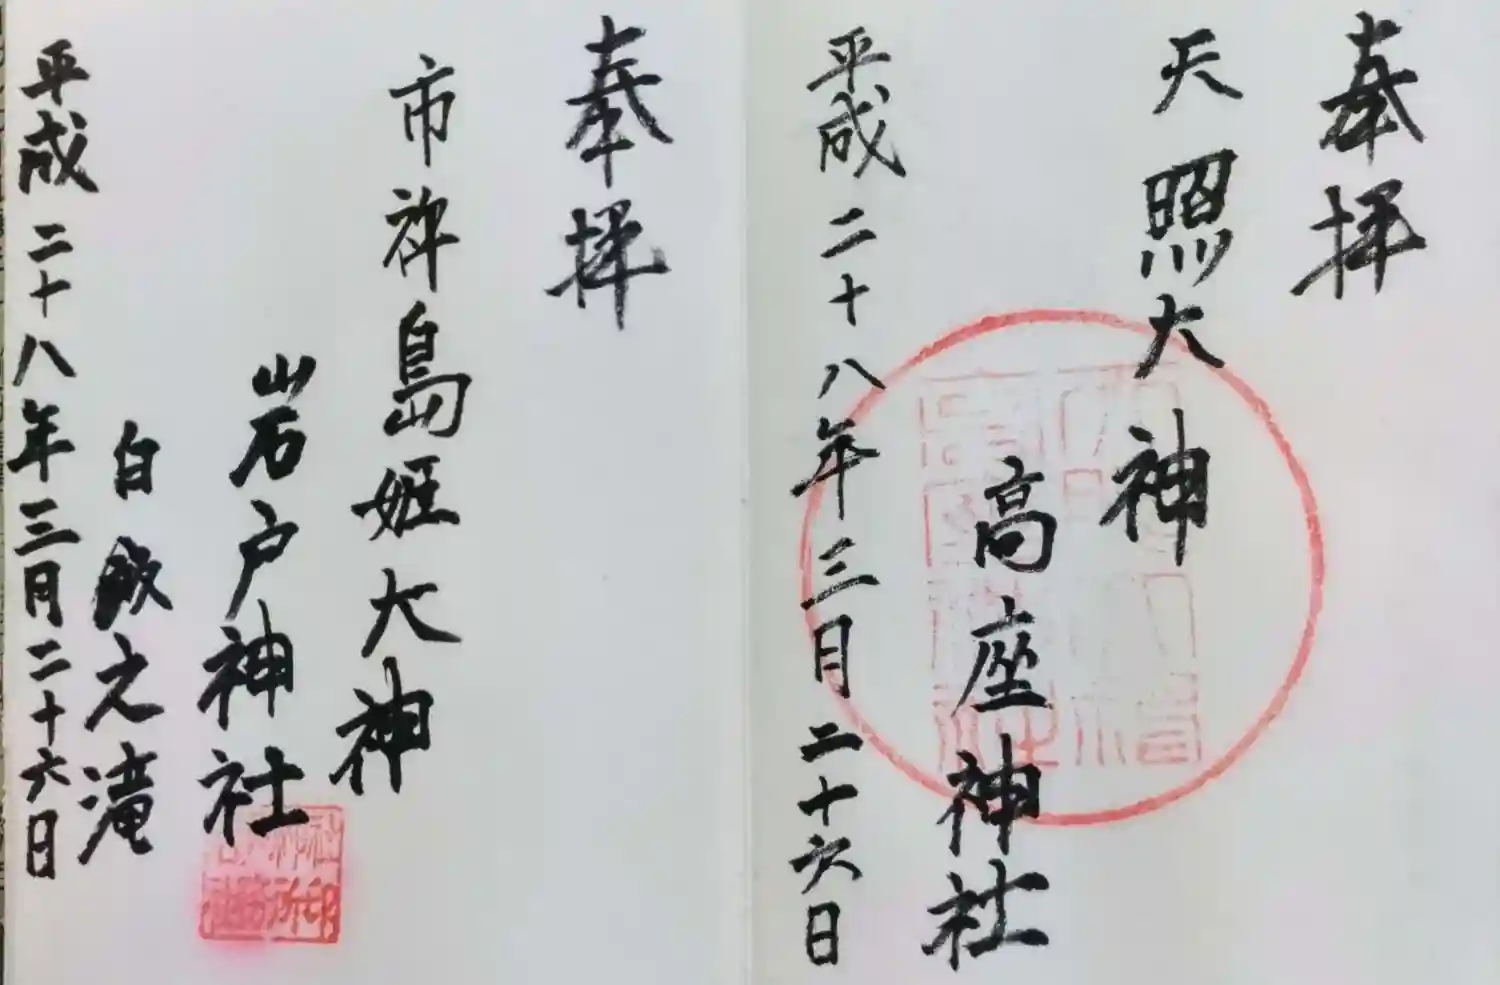 奉拝
天照大神
高座神社
平成二十八年三月二十六日
奉拝
市杵島姫大神
岩戸神社
白飯之滝
平成二十八年三月二十六日